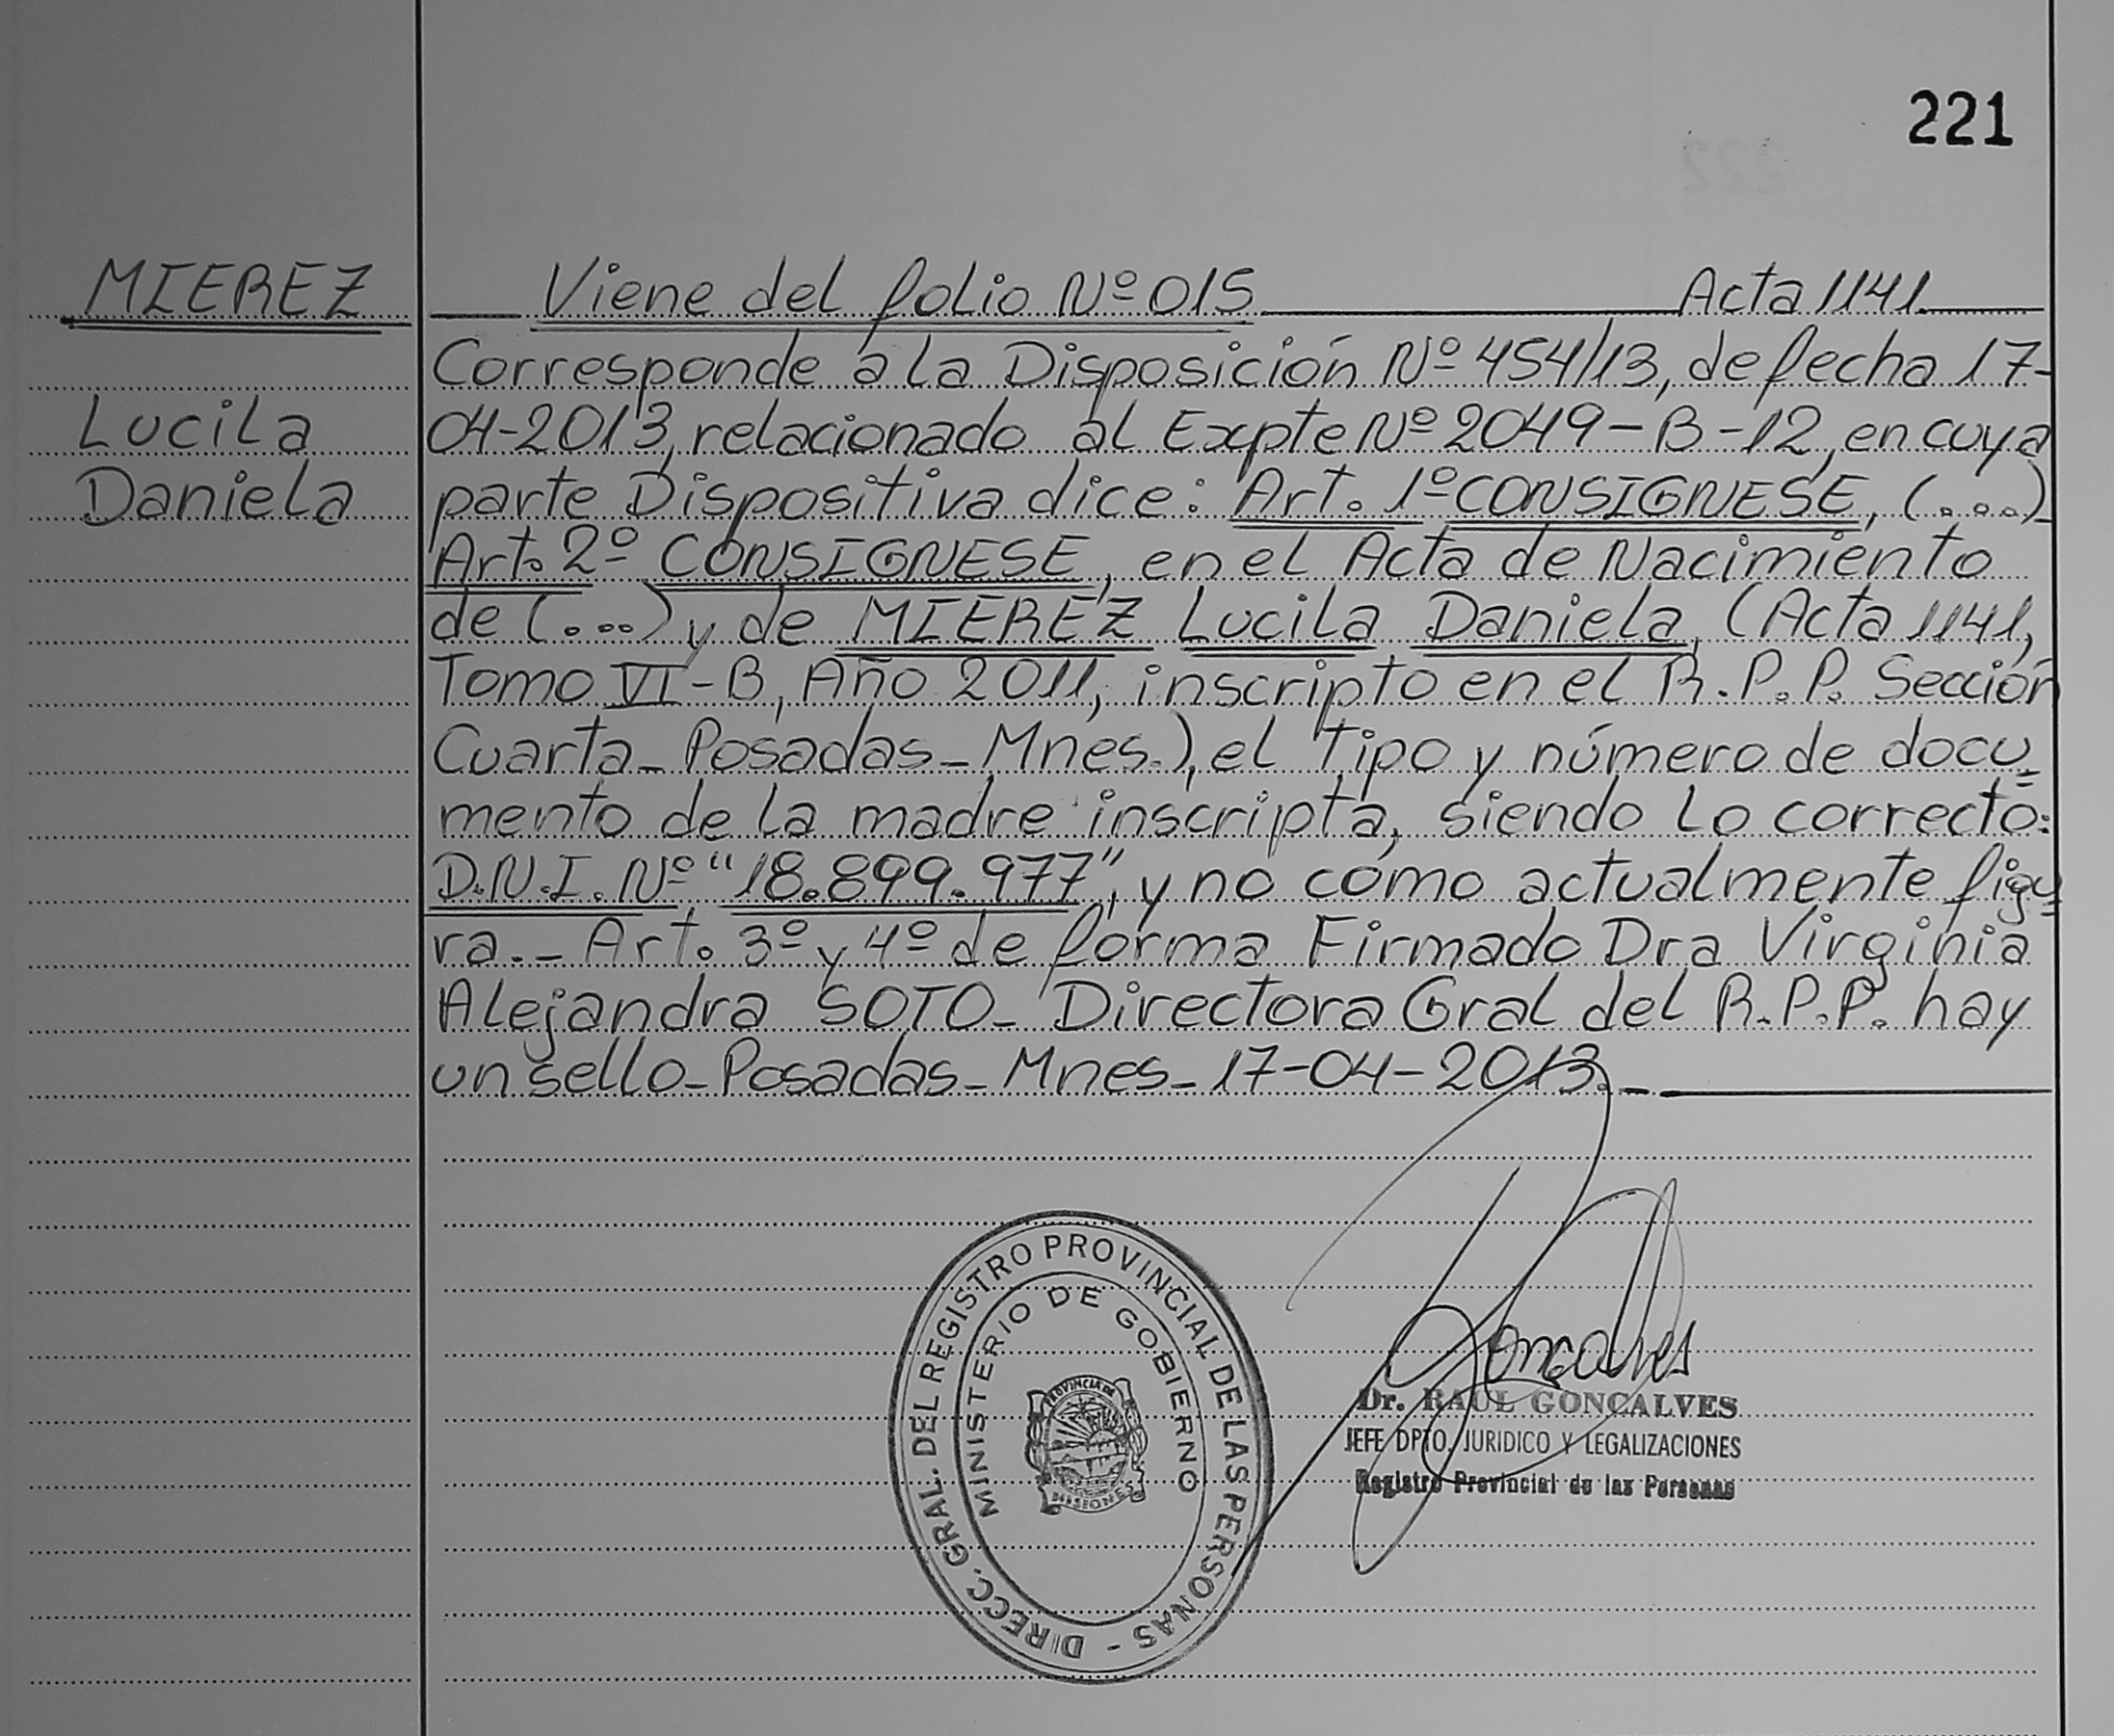 221
MIEREZ
Lucila
Daniela
Viene del folio Nº 015 Acta 1141
Corresponde a la Disposición Nº 454/13, de fecha 17-
04-2013, relacionado al Expte Nº 2049-B-12, en cuya
parte Dispositiva dice: Art. 1º CONSIGNESE, (....)
Art. 2º CONSIGNESE, en el Acta de Nacimiento
de (....) y de MIEREZ Lucila Daniela, (Acta 1141,
Tomo VI-B, Año 2011, inscripto en el R.P.P. Sección
Cuarta_Posadas_Mnes.), el tipo y número de docu=
mento de la madre inscripta, siendo lo correcto:
D.N.I. Nº "18.899.977", y no como actualmente figu=
ra._ Art. 3º y 4º de forma Firmado Dra Virginia
Alejandra SOTO_ Directora Gral del R.P.P. hay
un sello_Posadas_Mnes_17-04-2013._
DIRECC. GRAL. DEL REGISTRO PROVINCIAL DE LAS PERSONAS -
MINISTERIO DE GOBIERNO
PROVINCIA DE
MISIONES
Goncalves
Dr. RAUL GONCALVES
JEFE DPTO. JURIDICO Y LEGALIZACIONES
Registro Provincial de las Personas